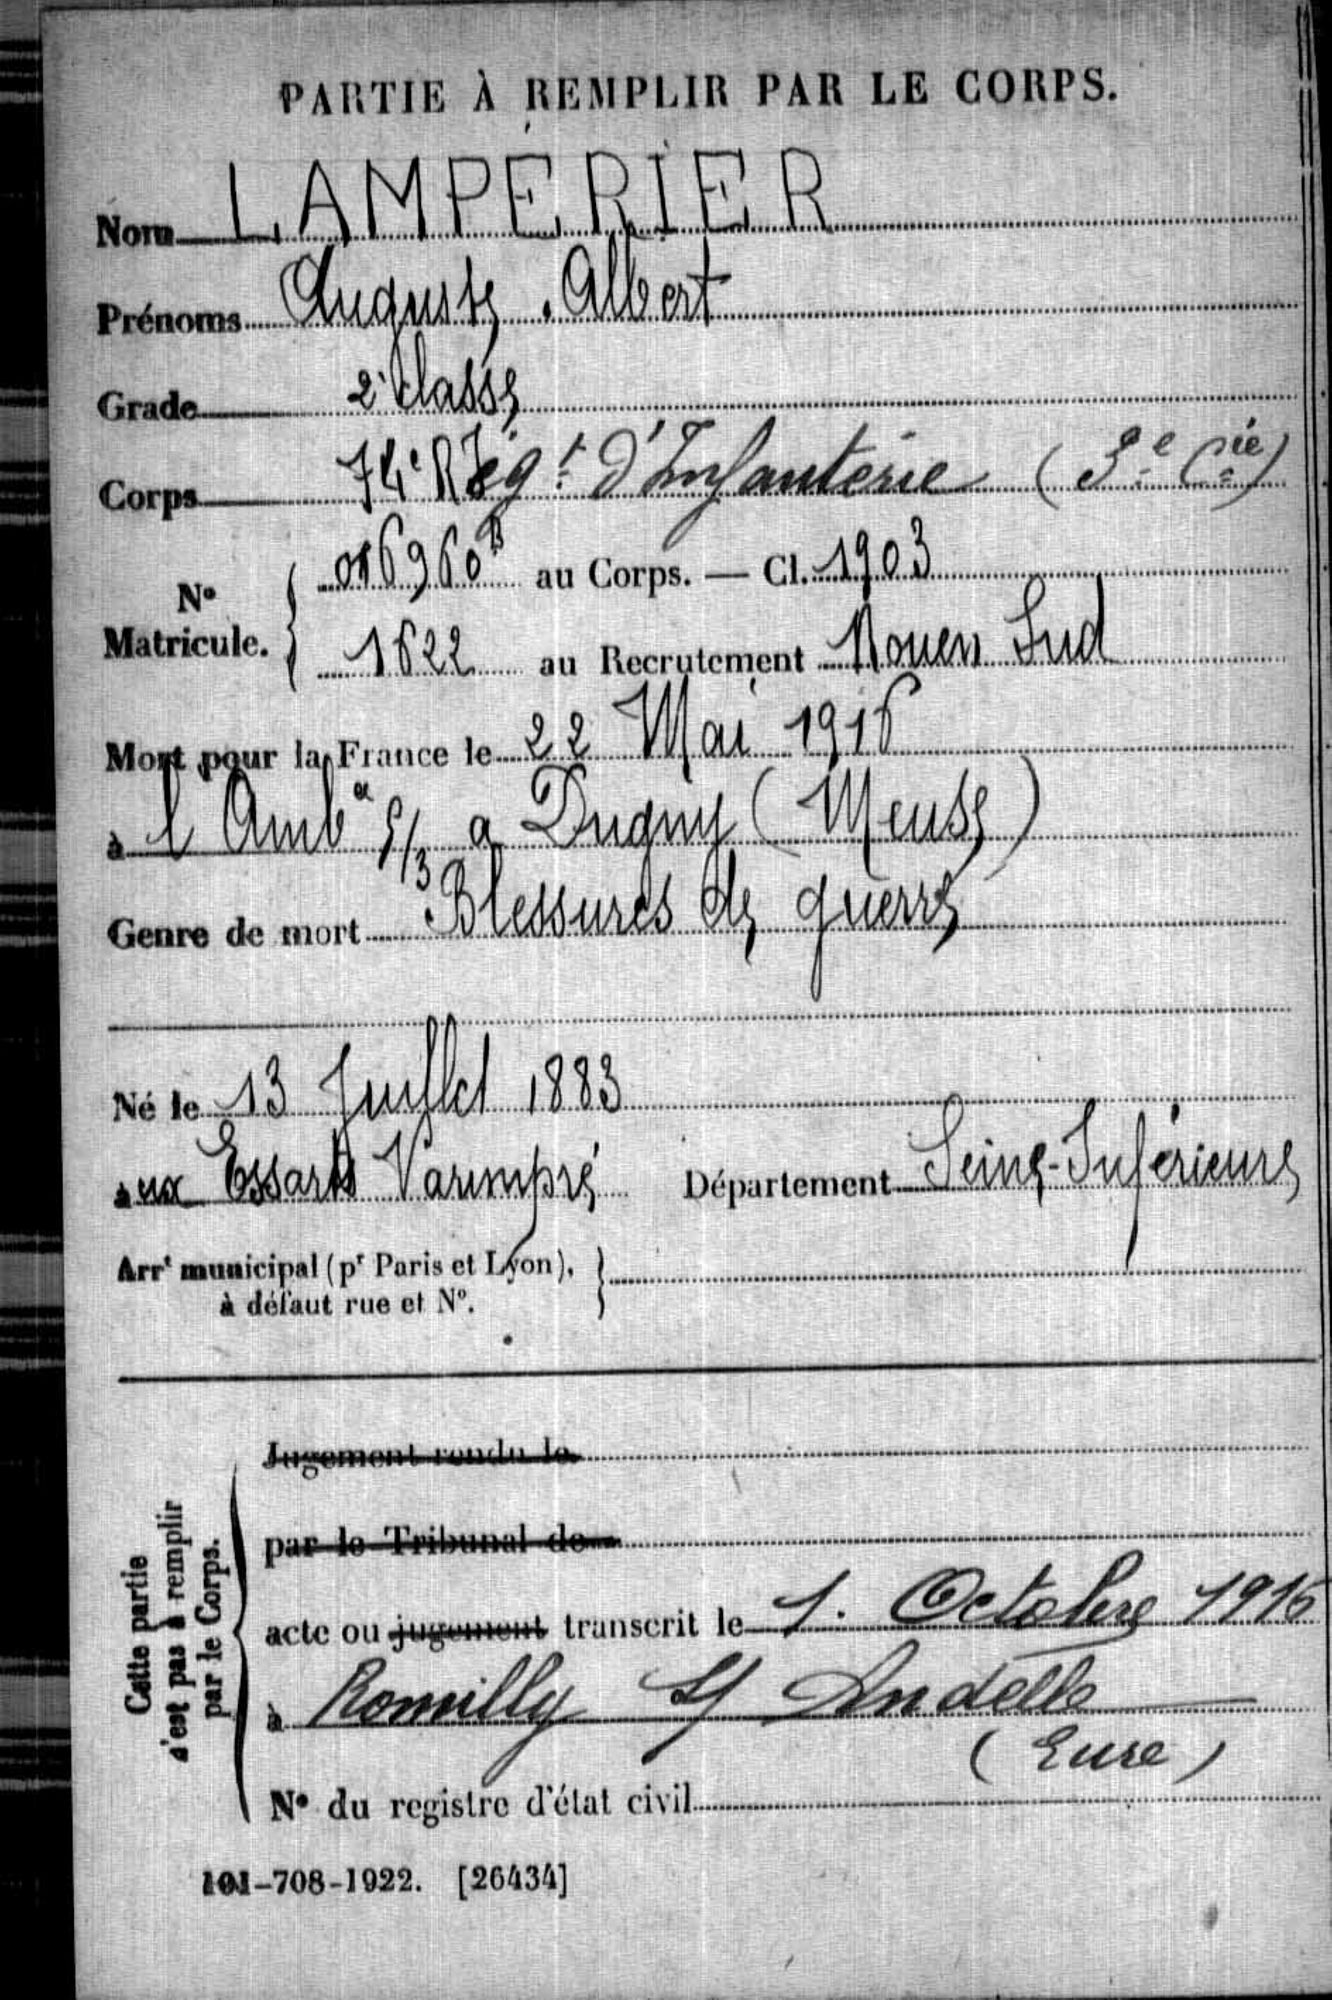 PARTIE À REMPLIR PAR LE CORPS.
Nom LAMPÉRIER
Prénoms Auguste Albert
Grade 2e Classe
Corps 74e Régt d'Infanterie (3e Cie)
No Matricule. 016960B au Corps. — Cl. 1903
1622 au Recrutement Rouen Sud
Mort pour la France le 22 Mai 1916
à l'Ambce 5/3 a Dugny (Meuse)
Genre de mort Blessures de guerre
Né le 13 Juillet 1883
aux Essarts Varimpré Département Seine-Inférieure
Arrt municipal (pr Paris et Lyon),
à défaut rue et No.
Cette partie
n'est pas à remplir
par le Corps.
Jugement rendu le
par le Tribunal de
acte ou jugement transcrit le 1. Octobre 1916
à Romilly s/ Andelle
(Eure)
No du registre d'état civil
101-708-1922. [26434]